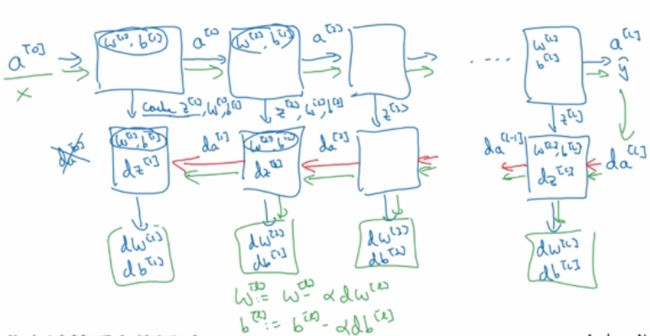 a^[0] w^[1], b^[1] a^[1] w^[2], b^[2] a^[2] .... w^[L] a^[L]
x b^[L] ŷ
cache z^[1], w^[1], b^[1] z^[2], w^[2], b^[2] z^[3] z^[L]
da^[0] w^[1], b^[1] da^[1] w^[2], b^[2] da^[2] da^[L-1] w^[L], b^[L] da^[L]
dz^[1] dz^[2] dz^[L]
dw^[1] dw^[2] dw^[3] dw^[L]
db^[1] db^[2] db^[3] db^[L]
w^[l] := w^[l] - αdw^[l]
b^[l] := b^[l] - αdb^[l]